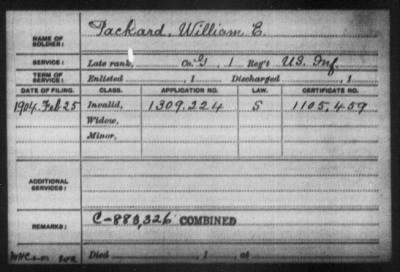 NAME OF SOLDIER: Packard, William E.
SERVICE: Late rank, Co. G, 1 Reg't U.S. Inf.
TERM OF SERVICE: Enlisted , 1 Discharged , 1
DATE OF FILING. CLASS. APPLICATION NO. LAW. CERTIFICATE NO.
1904, Feb 25 Invalid, 1309,224 S 1105,459
Widow,
Minor,
ADDITIONAL SERVICES:
REMARKS: C-888,326 COMBINED
Died , 1 , at